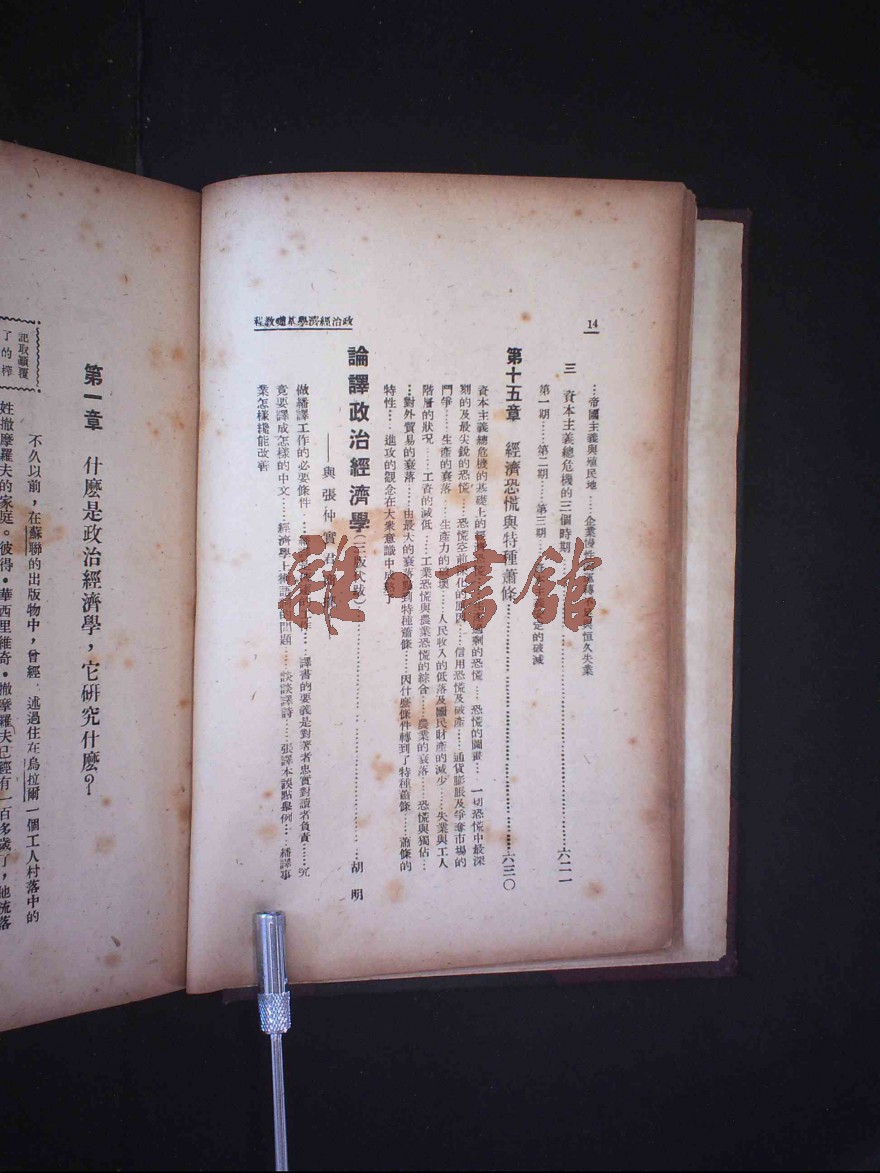 14
政治經濟學基礎教程
…帝國主義與殖民地……企業慢性
恒久失業
三 資本主義總危機的三個時期……六二一
第一期……第二期……第三期
定的破滅
第十五章 經濟恐慌與特種蕭條……六三〇
資本主義總危機的基礎上的經濟恐慌
過剩的恐慌……恐慌的圖畫……一切恐慌中最深
刻的及最尖銳的恐慌……恐慌空前
化的原因……信用恐慌及破產……通貨膨脹及爭奪市場的
鬥爭……生產的衰落……生產力的破壞……人民收入的低落及國民財產的減少……失業與工人
階層的狀況……工資的減低……工業恐慌與農業恐慌的綜合……農業的衰落……恐慌與獨佔…
…對外貿易的衰落……由最大的衰落
到特種蕭條……因什麼條件轉到了特種蕭條……蕭條的
特性……進攻的觀念在大衆意識中成熟了
論譯政治經濟學(三版代
)……胡 明
——與張仲實君
做繙譯工作的必要條件
譯書的要義是對著者忠實對讀者負責……究
竟要譯成怎樣的中文……經濟學上術語
的問題……談談譯詩……張譯本誤點舉例……繙譯事
業怎樣纔能改善
第一章 什麼是政治經濟學,它研究什麼?
不久以前,在蘇聯的出版物中,曾經
述過住在烏拉爾一個工人村落中的
記取顛覆
了的榨
姓撤摩羅夫的家庭。彼得·華西里維奇·撤摩羅夫已經有一百多歲了,他流落
雜·書館